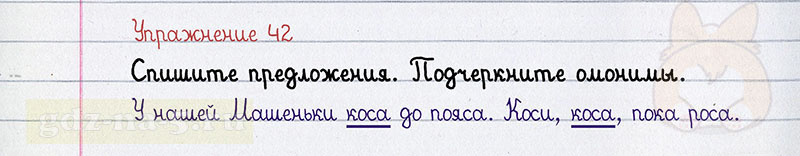 Упражнение 42
Спишите предложения. Подчеркните омонимы.
У нашей Машеньки коса до пояса. Коси, коса, пока роса.
gdz-na-5.ru